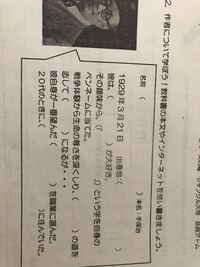 2. 作者について学ぼう！教科書の本文やインターネットを使い書きましょう。
名前（　　　　　）本名:手塚治
1929年3月21日　出身地:（　　　　　）
彼は、（　　　　　）が大好き。
その趣味から、（「　　　」）という字を自身の
ペンネームに当てた。
戦争体験から生命の尊さを深くしり、（　　　）の道を
志して（　　　）になるが・・・
彼自身が一番望んだ（　　　）を職業に選んだ。
20代のときに、（　　　）に住んでいた。